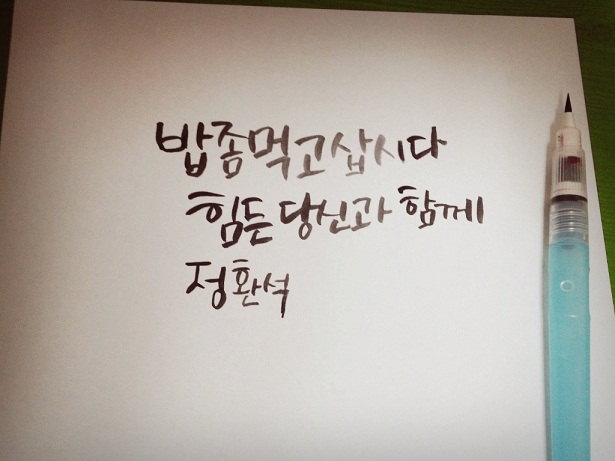 밥좀먹고삽시다
힘든 당신과 함께
정환석